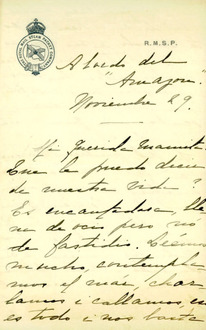 R.M.S.P.
ROYAL MAIL STEAM PACKET COMPANY
A bordo del
"Amazon"
Noviembre 29.
Mi querida Mamita:
Que le puedo decir
de nuestra vida?
Es encantadora, lle
na de sans pero no
de fastidio. Leemos
mucho, contempla
mos el mar, char
lamos i callamos, en
es todo i nos basta